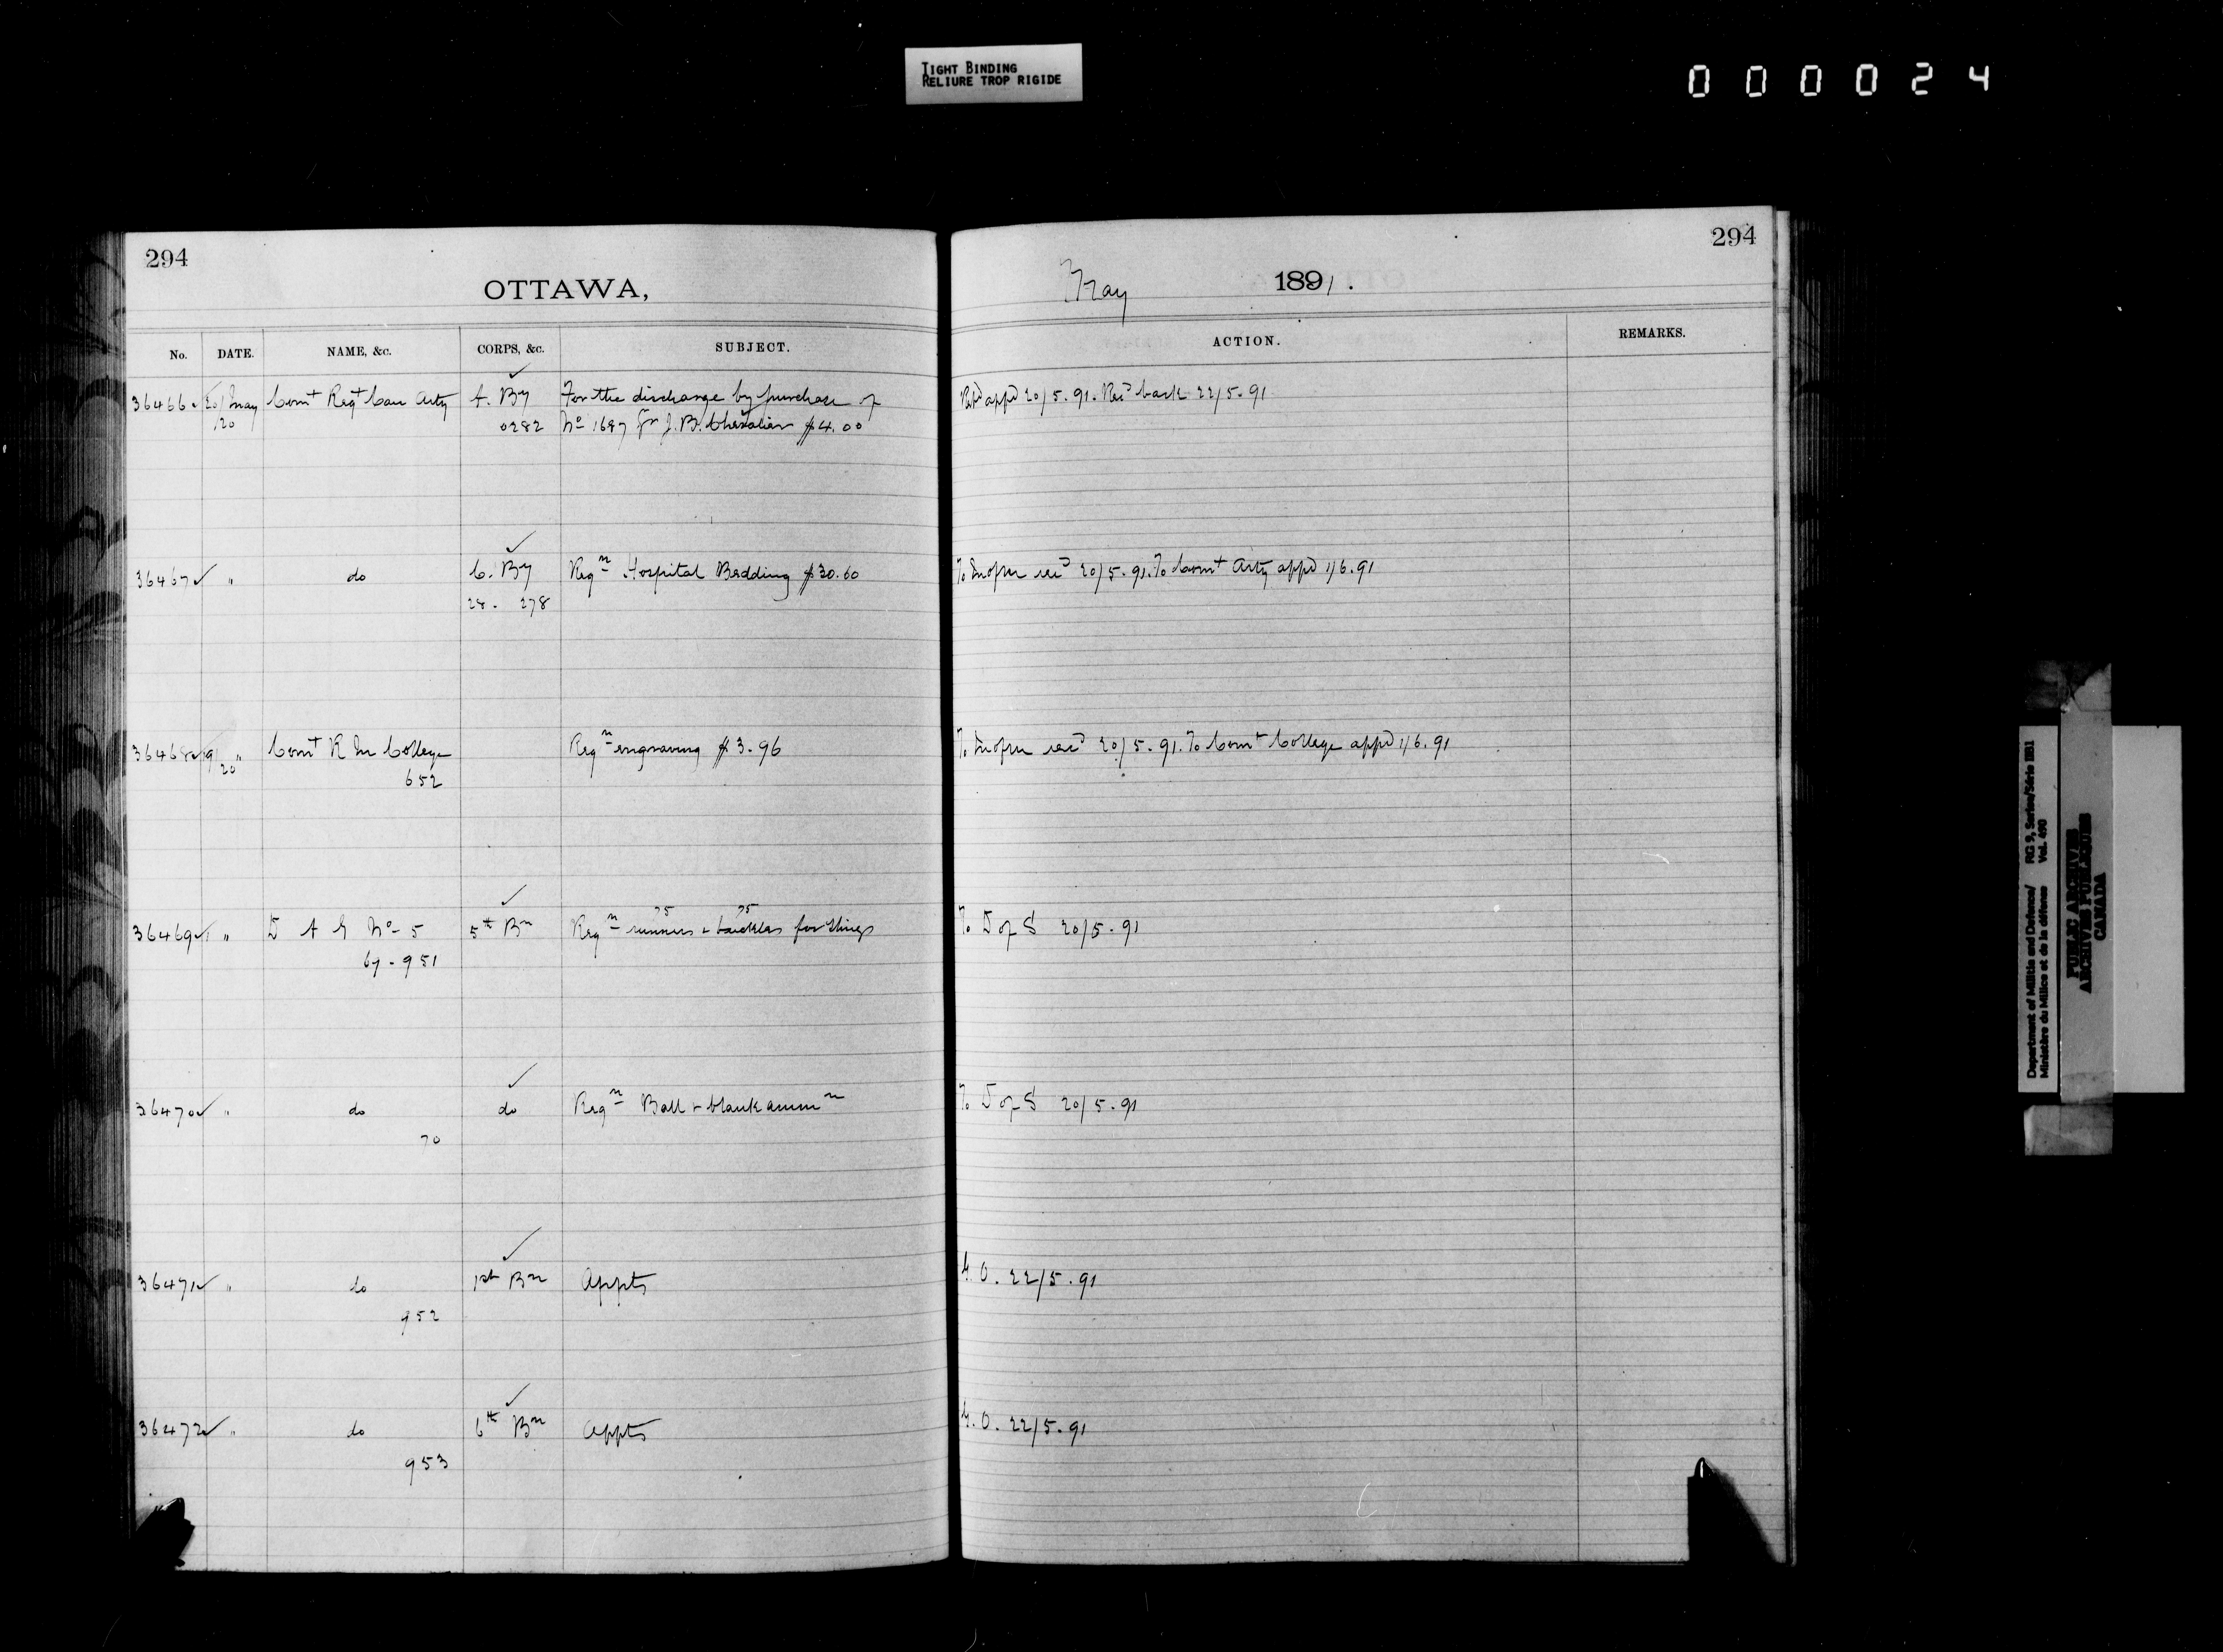 TIGHT BINDING
RELIURE TROP RIGIDE
000024
294
OTTAWA,
No. DATE. NAME, &c. CORPS, &c. SUBJECT.
36466 20/May Comt Regt Can Arty A. By For the discharge by purchase of
/20 0282 No 1687 Gr J. B. Chevalier $4.00
36467 " do C. By Reqn Hospital Bedding $30.60
28. 278
36468 19/20 " Comt R M College Reqn engraving $3.96
652
75 75
36469 " D A G No 5 5th Bn Reqn runners & buckles for slings
67-951
36470 " do do Reqn Ball & blank ammn
70
36471 " do 1st Bn Appts
952
36472 " do 6th Bn Appts
953
294
May 1891.
ACTION. REMARKS.
appd 20/5.91. Recd back 22/5.91
To recd 20/5.91. To Comt Arty appd 1/6.91
To recd 20/5.91. To Comt College appd 1/6.91
To D of S 20/5.91
To D of S 20/5.91
G.O. 22/5.91
G.O. 22/5.91
Department of Militia and Defence/ RG 9, Series/Série IIB1
Ministère du Milice et de la défence Vol. 490
PUBLIC ARCHIVES
ARCHIVES PUBLIQUES
CANADA